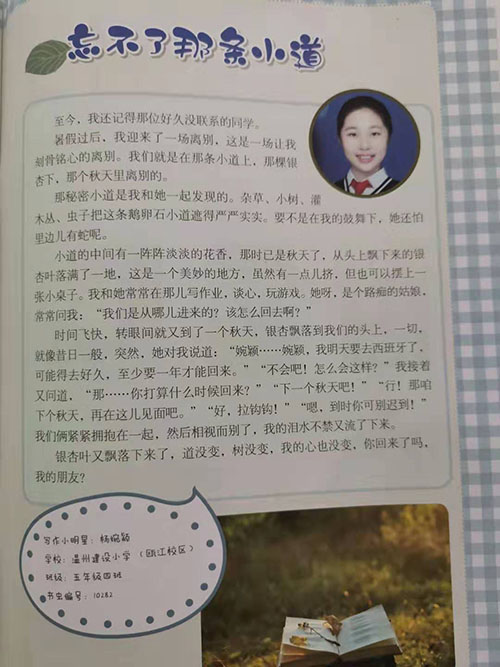 忘不了那条小道
至今，我还记得那位好久没联系的同学。
暑假过后，我迎来了一场离别，这是一场让我
刻骨铭心的离别。我们就是在那条小道上，那棵银
杏下，那个秋天里离别的。
那秘密小道是我和她一起发现的。杂草、小树、灌
木丛、虫子把这条鹅卵石小道遮得严严实实。要不是在我的鼓舞下，她还怕
里边儿有蛇呢。
小道的中间有一阵阵淡淡的花香，那时已是秋天了，从头上飘下来的银
杏叶落满了一地，这是一个美妙的地方，虽然有一点儿挤，但也可以摆上一
张小桌子。我和她常常在那儿写作业，谈心，玩游戏。她呀，是个路痴的姑娘，
常常问我：“我们是从哪儿进来的？该怎么回去啊？”
时间飞快，转眼间就又到了一个秋天，银杏飘落到我们的头上，一切，
就像昔日一般，突然，她对我说道：“婉颖……婉颖，我明天要去西班牙了，
可能得去好久，至少要一年才能回来。”“不会吧！怎么会这样？”我接着
又问道，“那……你打算什么时候回来？”“下一个秋天吧！”“行！那咱
下个秋天，再在这儿见面吧。”“好，拉钩钩！”“嗯，到时你可别迟到！”
我们俩紧紧拥抱在一起，然后相视而别了，我的泪水不禁又流了下来。
银杏叶又飘落下来了，道没变，树没变，我的心也没变，你回来了吗，
我的朋友？
写作小明星：杨婉颖
学校：温州建设小学（瓯江校区）
班级：五年级四班
书虫编号：10282